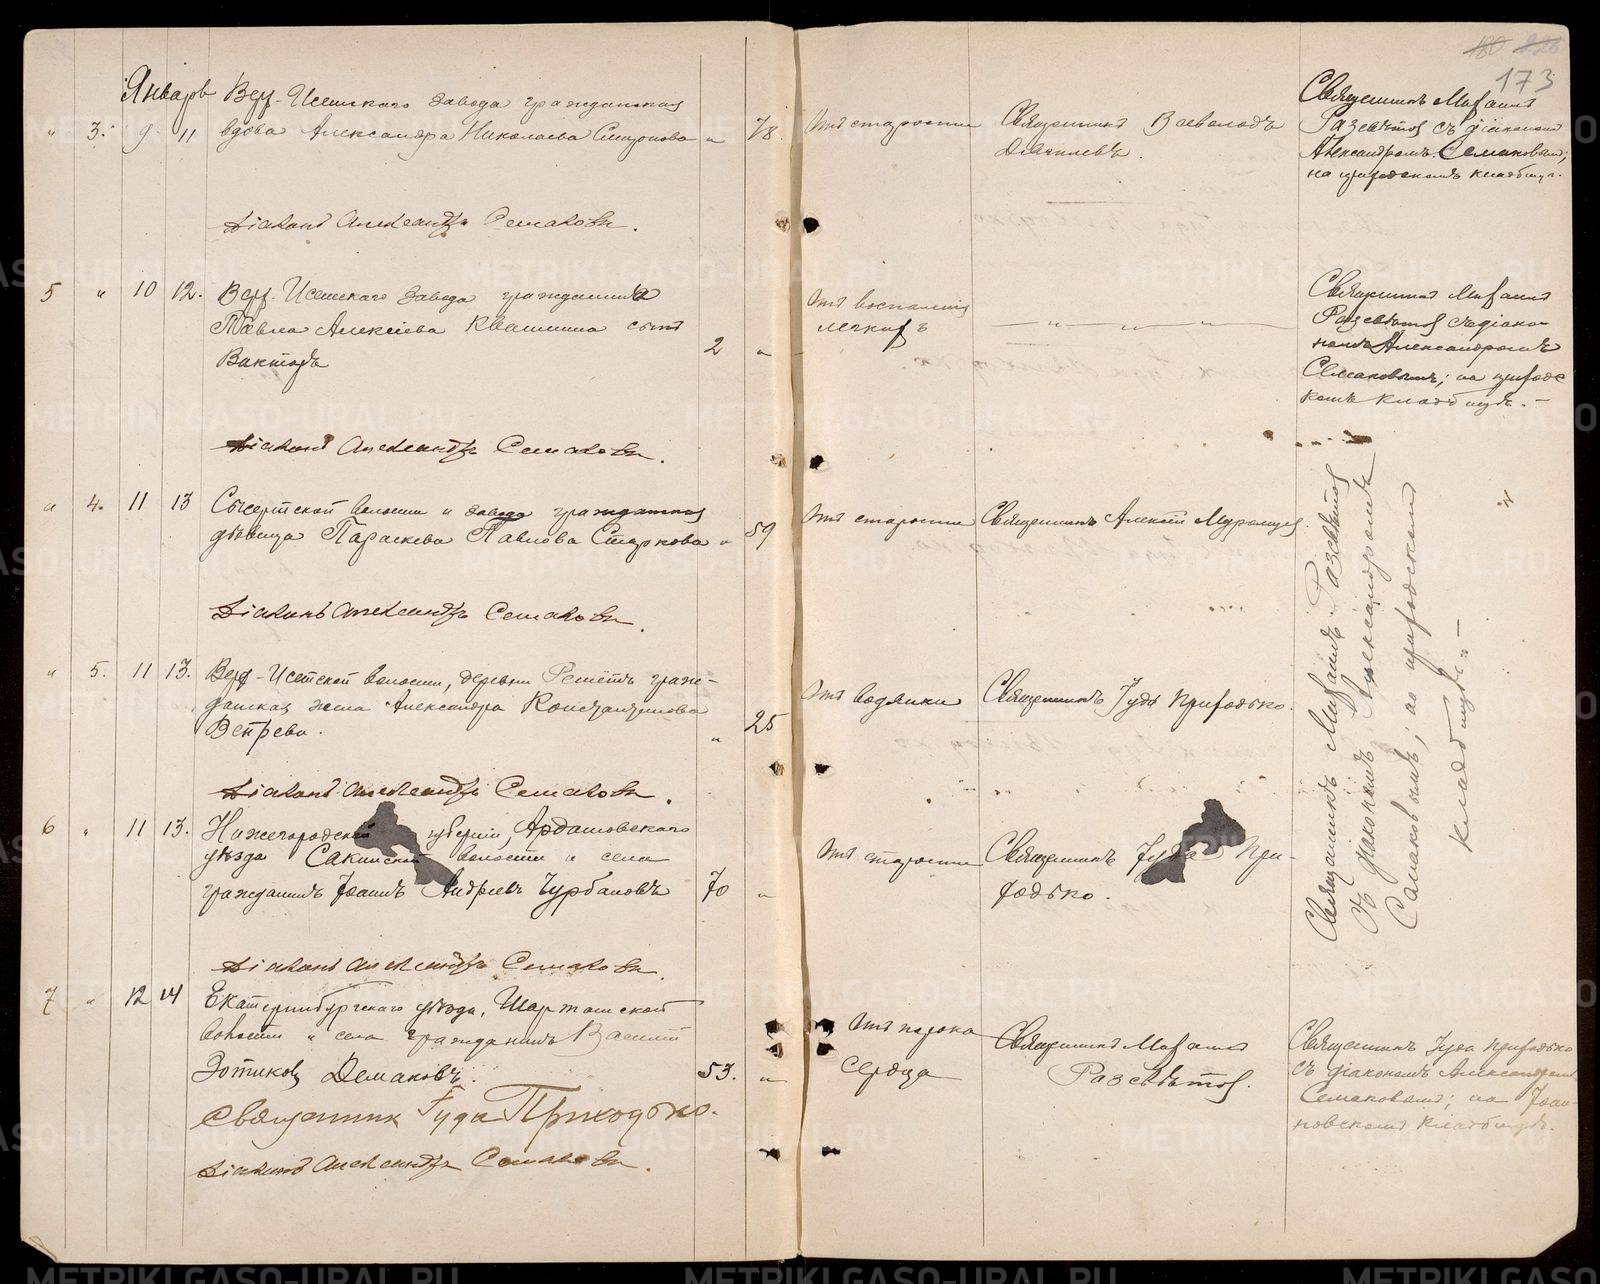 180 226
173
Январь Верх-Исетскаго завода гражданская
" 3. 9 11 вдова Александра Николаева " 78
Отъ старости
Священникъ Всеволодъ
Священникъ Михаилъ
Разсвѣтов съ діакономъ
Александромъ Семаковымъ;
на приходскомъ кладбищѣ.
Діаконъ Александръ Семаковъ.
5 " 10 12. Верх-Исетскаго завода гражданина
Павла Алексѣева Квашнина сынъ
Викторъ 2 "
Отъ воспаленія
легкихъ
— " — " — " —
Священник Михаилъ
Разсвѣтов съ діако-
номъ Александромъ
Семаковымъ; на приходс
комъ кладбищѣ. —
Діаконъ Александръ Семаковъ.
" 4. 11 13 Сысертской волости и завода гражданка
дѣвица Параскева Павлова " 59
Отъ старости
Священникъ Алексій
Діаконъ Александръ Семаковъ.
" 5. 11 13. Верх-Исетской волости, деревни Решётъ граж-
данская жена Александра Константинова
Вепрева. " 25
Отъ водянки
Священникъ Іуда Приходько.
Священникъ Михаилъ Разсвѣтов
съ діакономъ Александромъ
Семаковымъ; на приходскомъ
кладбищѣ. —
Діаконъ Александръ Семаковъ.
6 " 11 13. Нижегородской губерніи, Ардатовскаго
уѣзда волости и села
гражданинъ Іоаннъ Андреевъ Чурбановъ 70 "
Отъ старости
Священникъ Іуда При-
ходько.
Діаконъ Александръ Семаковъ.
7 " 12 14 Екатеринбургскаго уѣзда, Шарташской
волости и села гражданинъ Василій
Зотиковъ Демаковъ. 53. "
Отъ порока
сердца
Священникъ Михаилъ
Разсвѣтов.
Священникъ Іуда Приходько
съ діакономъ Александромъ
Семаковымъ; на Іоан-
новскомъ кладбищѣ.
Священник Іуда Приходько.
Діаконъ Александръ Семаковъ.
METRIKI.GASO-URAL.RU